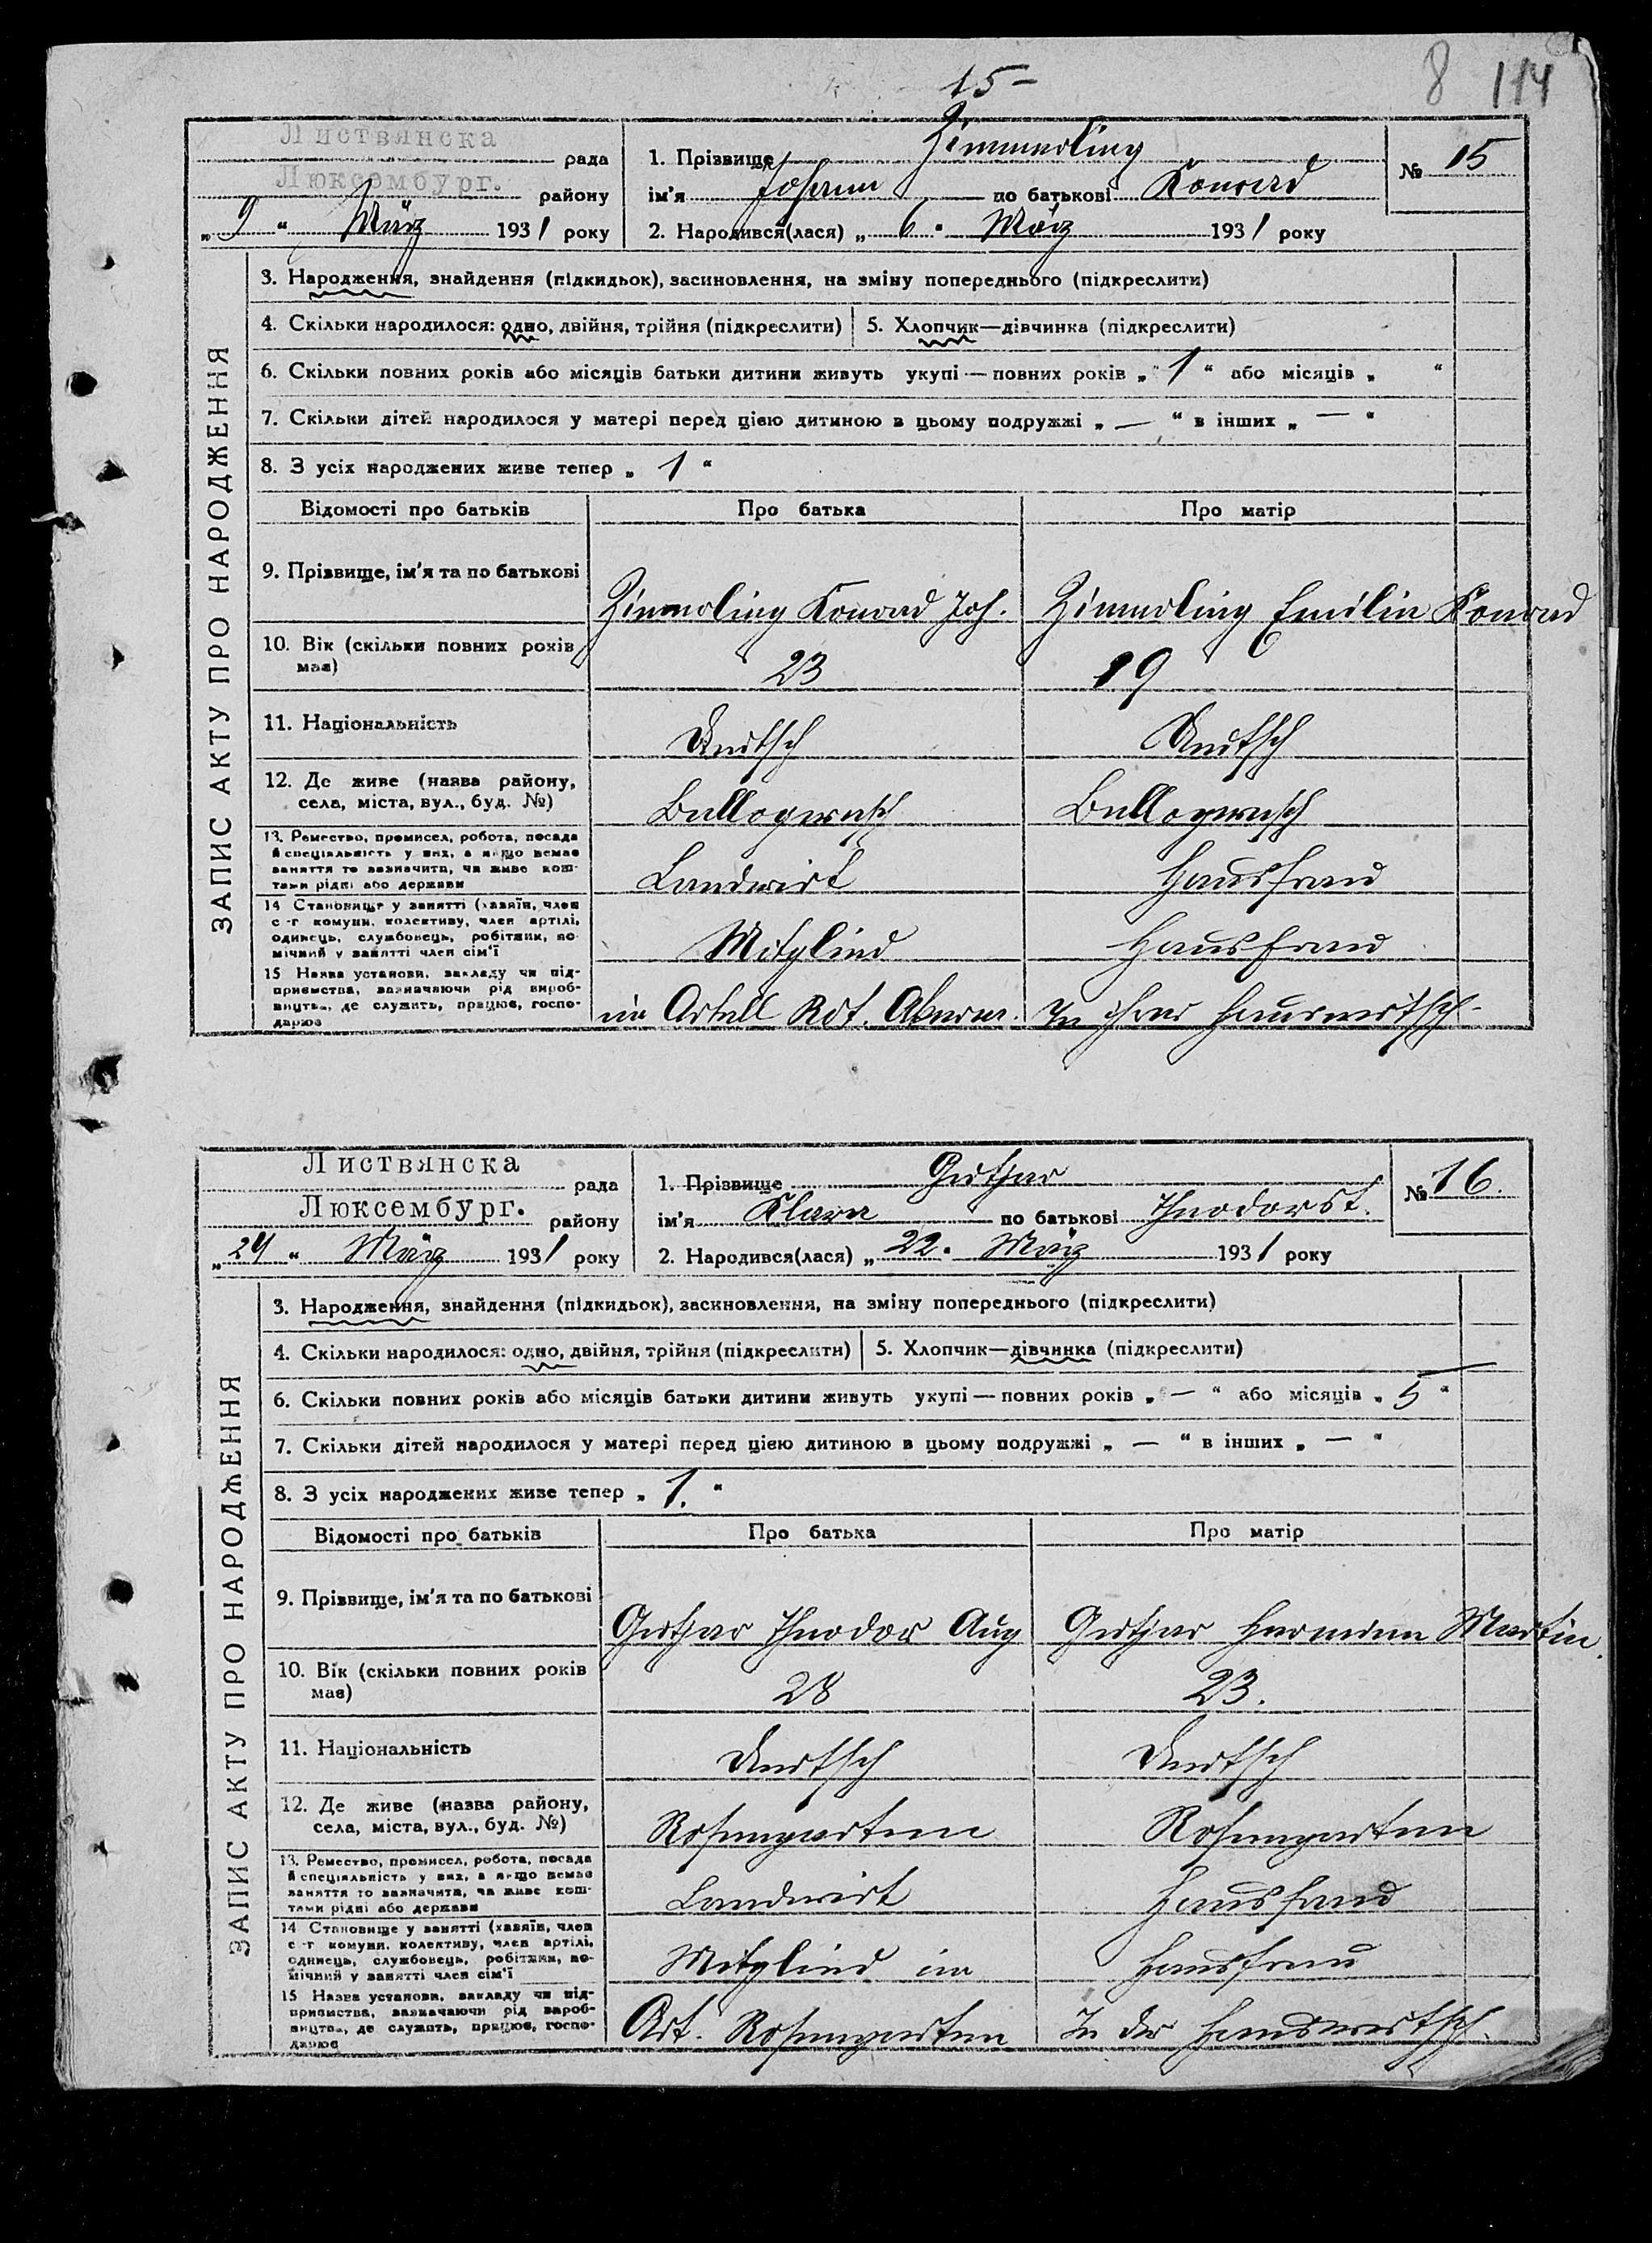 15-
8 114
Листвянска рада
Люксембург. району
„ 9 “ März 1931 року
1. Прізвище Zimmerling
ім'я Johann по батькові Konrad
2. Народився(лася) „ 6 “ März 1931 року
№ 15
ЗАПИС АКТУ ПРО НАРОДЖЕННЯ
3. Народження, знайдення (підкидьок), засиновлення, на зміну попереднього (підкреслити)
4. Скільки народилося: одно, двійня, трійня (підкреслити) 5. Хлопчик—дівчинка (підкреслити)
6. Скільки повних років або місяців батьки дитини живуть укупі — повних років „ 1 “ або місяців „ “
7. Скільки дітей народилося у матері перед цією дитиною в цьому подружжі „ — “ в інших „ — “
8. З усіх народжених живе тепер „ 1 “
Відомості про батьків Про батька Про матір
9. Прізвище, ім'я та по батькові Zimmerling Konrad Joh. Zimmerling Emilie Konrad
10. Вік (скільки повних років має) 23 19
11. Національність Deutsch Deutsch
12. Де живе (назва району, села, міста, вул., буд. №)
13. Ремество, промисел, робота, посада й спеціяльність у них, а якщо немає заняття то зазначити, чи живе коштами рідні або держави Landwirt Hausfrau
14 Становище у занятті (хазяїн, член с-г комуни, колективу, член артілі, одинець, службовець, робітник, помічний у занятті член сім'ї Mitglied Hausfrau
15 Назва установи, закладу чи підприємства, зазначаючи рід виробництва, де служить, працює, господарює im Artell Rot. In ihrer Hauswirtsch.
Листвянска рада
Люксембург. району
„ 24 “ März 1931 року
1. Прізвище Gutjar
ім'я Klara по батькові Theodor
2. Народився(лася) „ 22. “ März 1931 року
№ 16.
ЗАПИС АКТУ ПРО НАРОДЖЕННЯ
3. Народження, знайдення (підкидьок), засиновлення, на зміну попереднього (підкреслити)
4. Скільки народилося: одно, двійня, трійня (підкреслити) 5. Хлопчик—дівчинка (підкреслити)
6. Скільки повних років або місяців батьки дитини живуть укупі — повних років „ — “ або місяців „ 5 “
7. Скільки дітей народилося у матері перед цією дитиною в цьому подружжі „ — “ в інших „ — “
8. З усіх народжених живе тепер „ 1. “
Відомості про батьків Про батька Про матір
9. Прізвище, ім'я та по батькові Gutjar Theodor Aug Gutjar Hermine Martin.
10. Вік (скільки повних років має) 28 23.
11. Національність Deutsch Deutsch
12. Де живе (назва району, села, міста, вул., буд. №) Rosengarten Rosengarten
13. Ремество, промисел, робота, посада й спеціяльність у них, а якщо немає заняття то зазначити, чи живе коштами рідні або держави Landwirt Hausfrau
14 Становище у занятті (хазяїн, член с-г комуни, колективу, член артілі, одинець, службовець, робітник, помічний у занятті член сім'ї Mitglied im Hausfrau
15 Назва установи, закладу чи підприємства, зазначаючи рід виробництва, де служить, працює, господарює Art. Rosengarten In der Hauswirtsch.